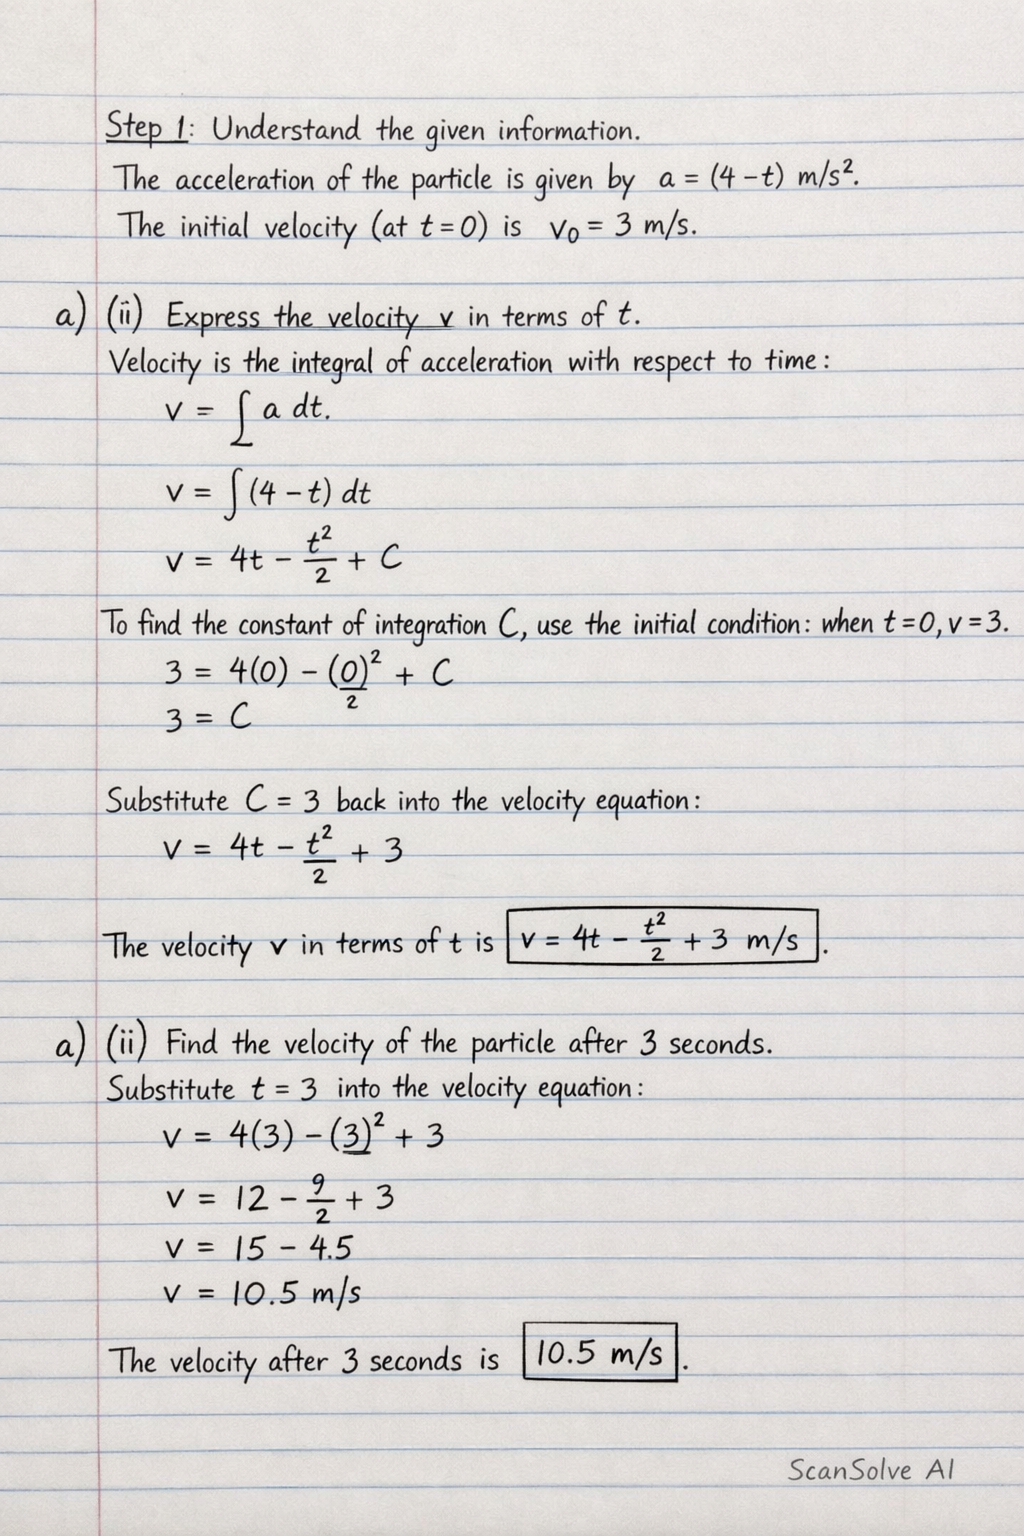 Step 1: Understand the given information.
The acceleration of the particle is given by a = (4 – t) m/s².
The initial velocity (at t = 0) is v₀ = 3 m/s.
a) (ii) Express the velocity v in terms of t.
Velocity is the integral of acceleration with respect to time:
v = ∫ a dt.
v = ∫ (4 – t) dt
v = 4t – t²/2 + C
To find the constant of integration C, use the initial condition: when t = 0, v = 3.
3 = 4(0) – (0)²/2 + C
3 = C
Substitute C = 3 back into the velocity equation:
v = 4t – t²/2 + 3
The velocity v in terms of t is v = 4t – t²/2 + 3 m/s.
a) (ii) Find the velocity of the particle after 3 seconds.
Substitute t = 3 into the velocity equation:
v = 4(3) – (3)² + 3
v = 12 – 9/2 + 3
v = 15 – 4.5
v = 10.5 m/s
The velocity after 3 seconds is 10.5 m/s.
ScanSolve AI